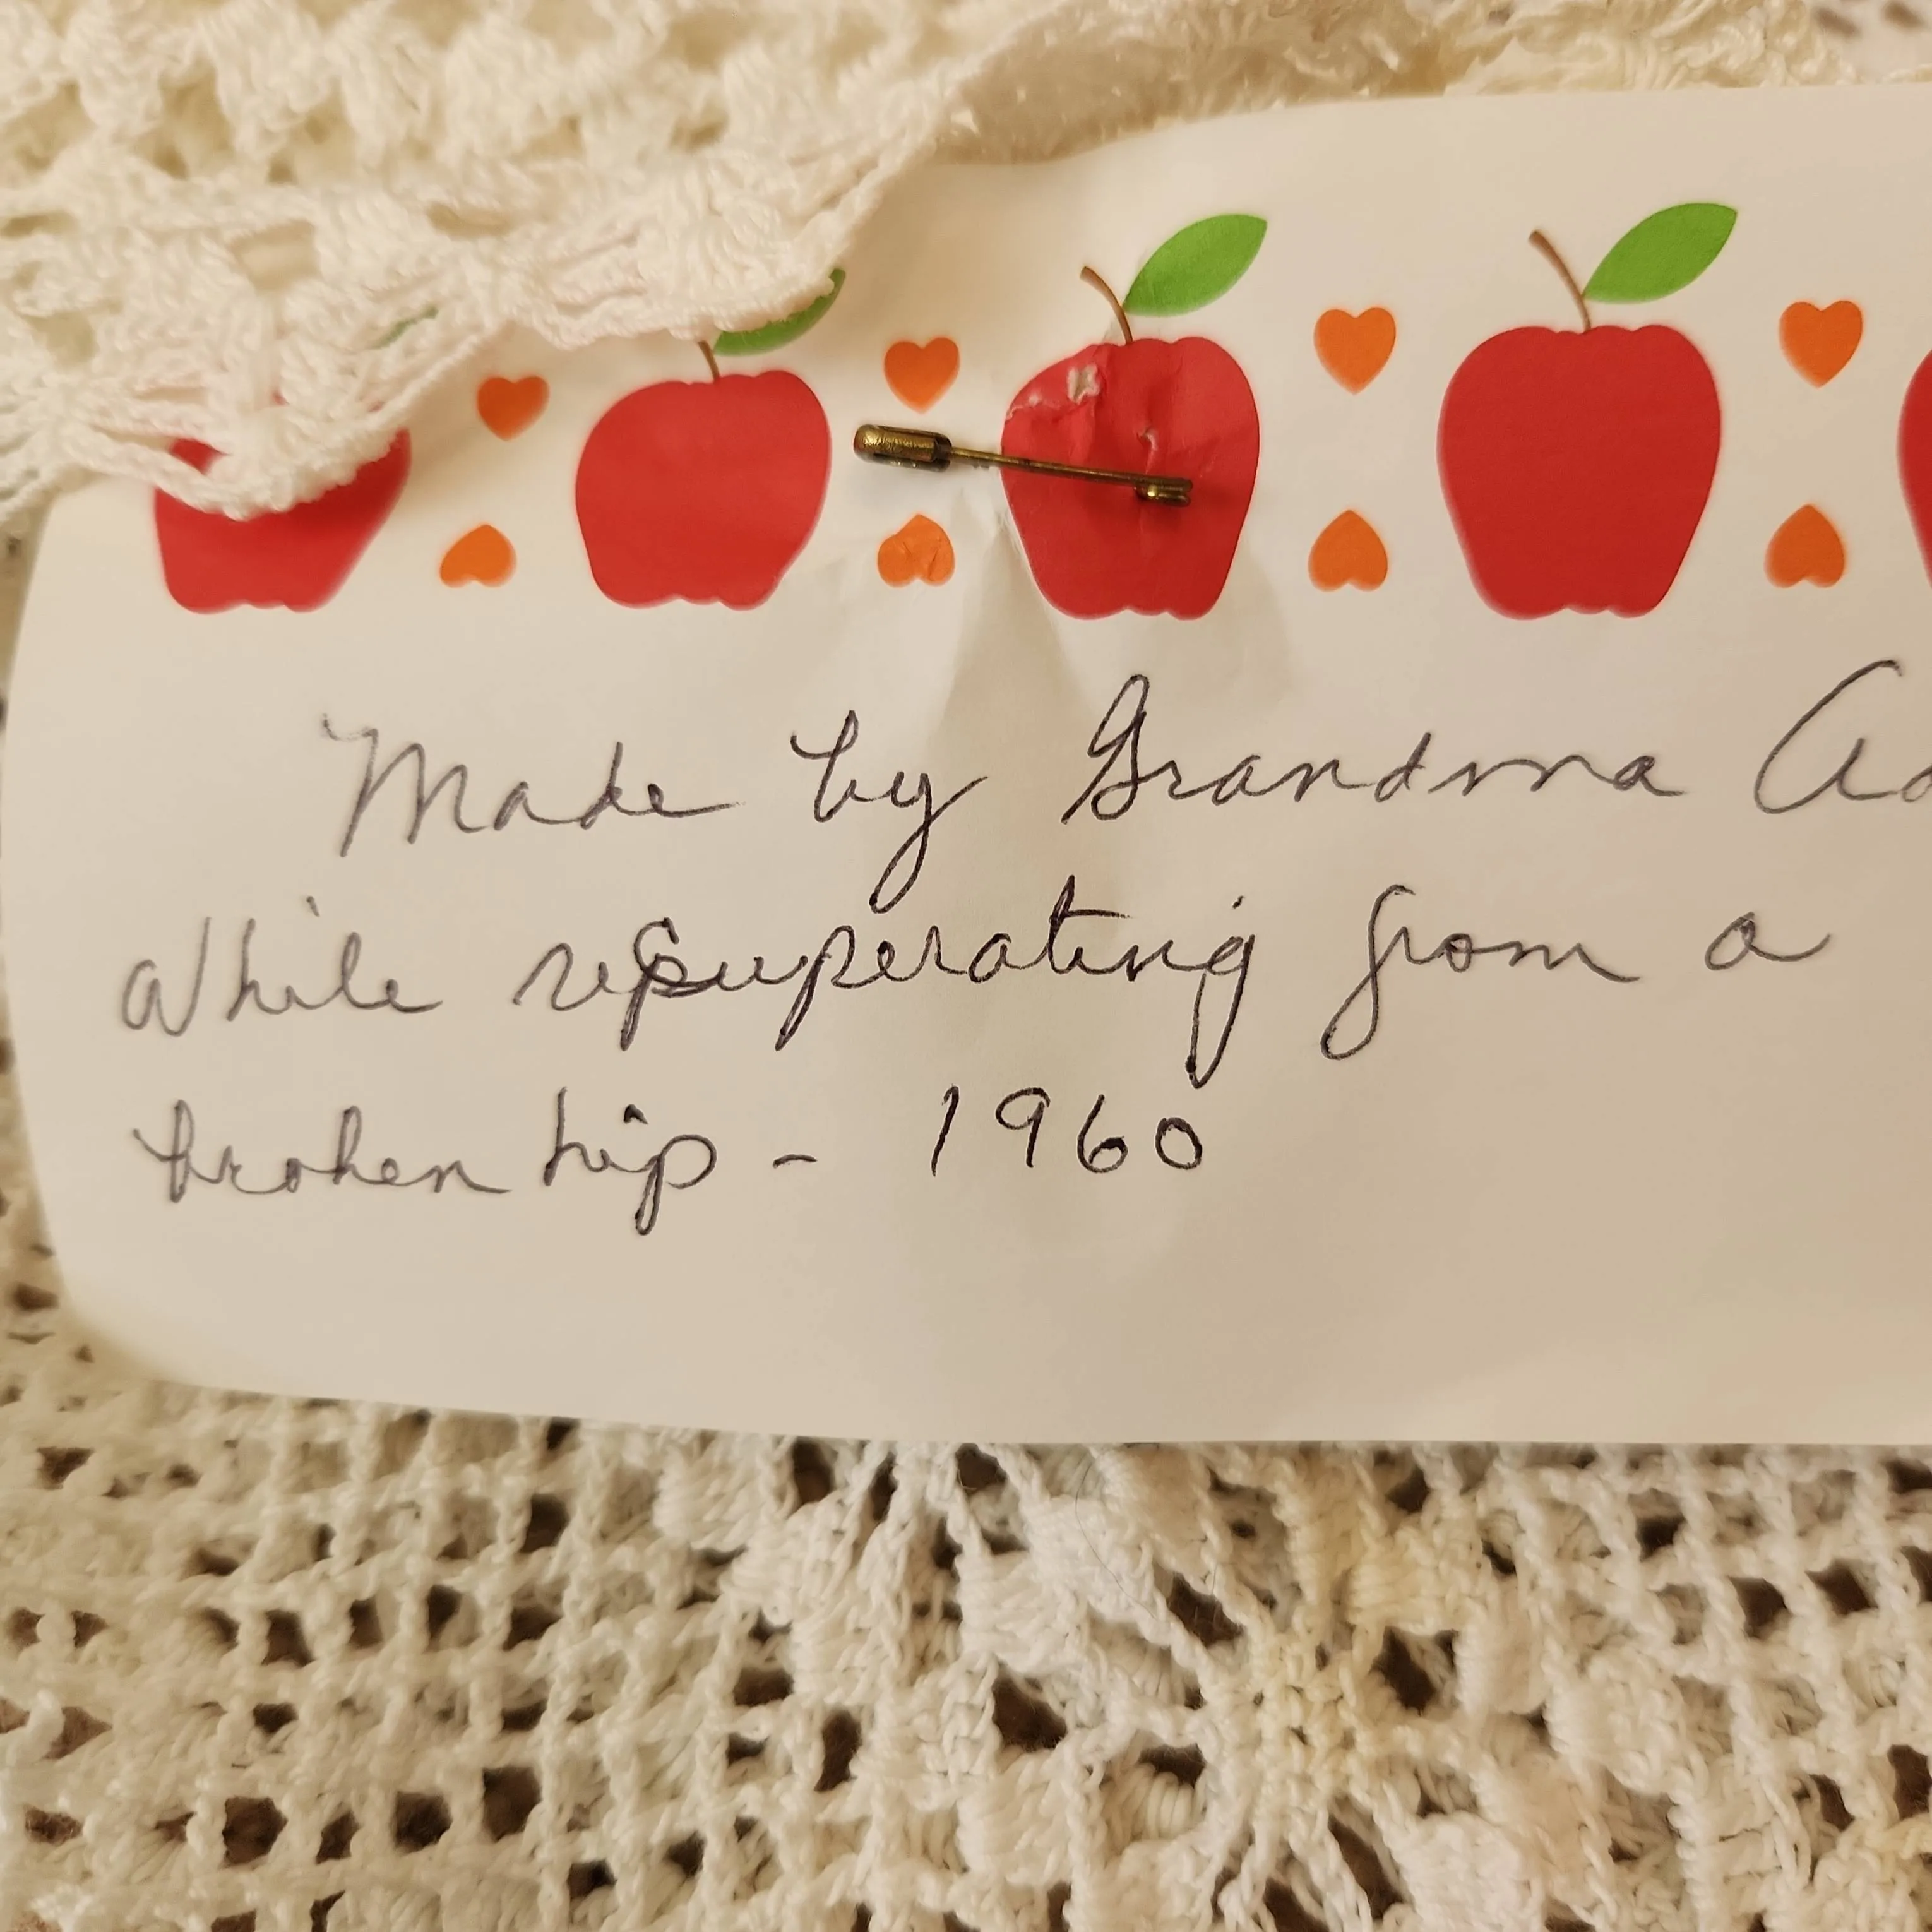 Made by Grandma Ad
While recuperating from a
broken hip - 1960